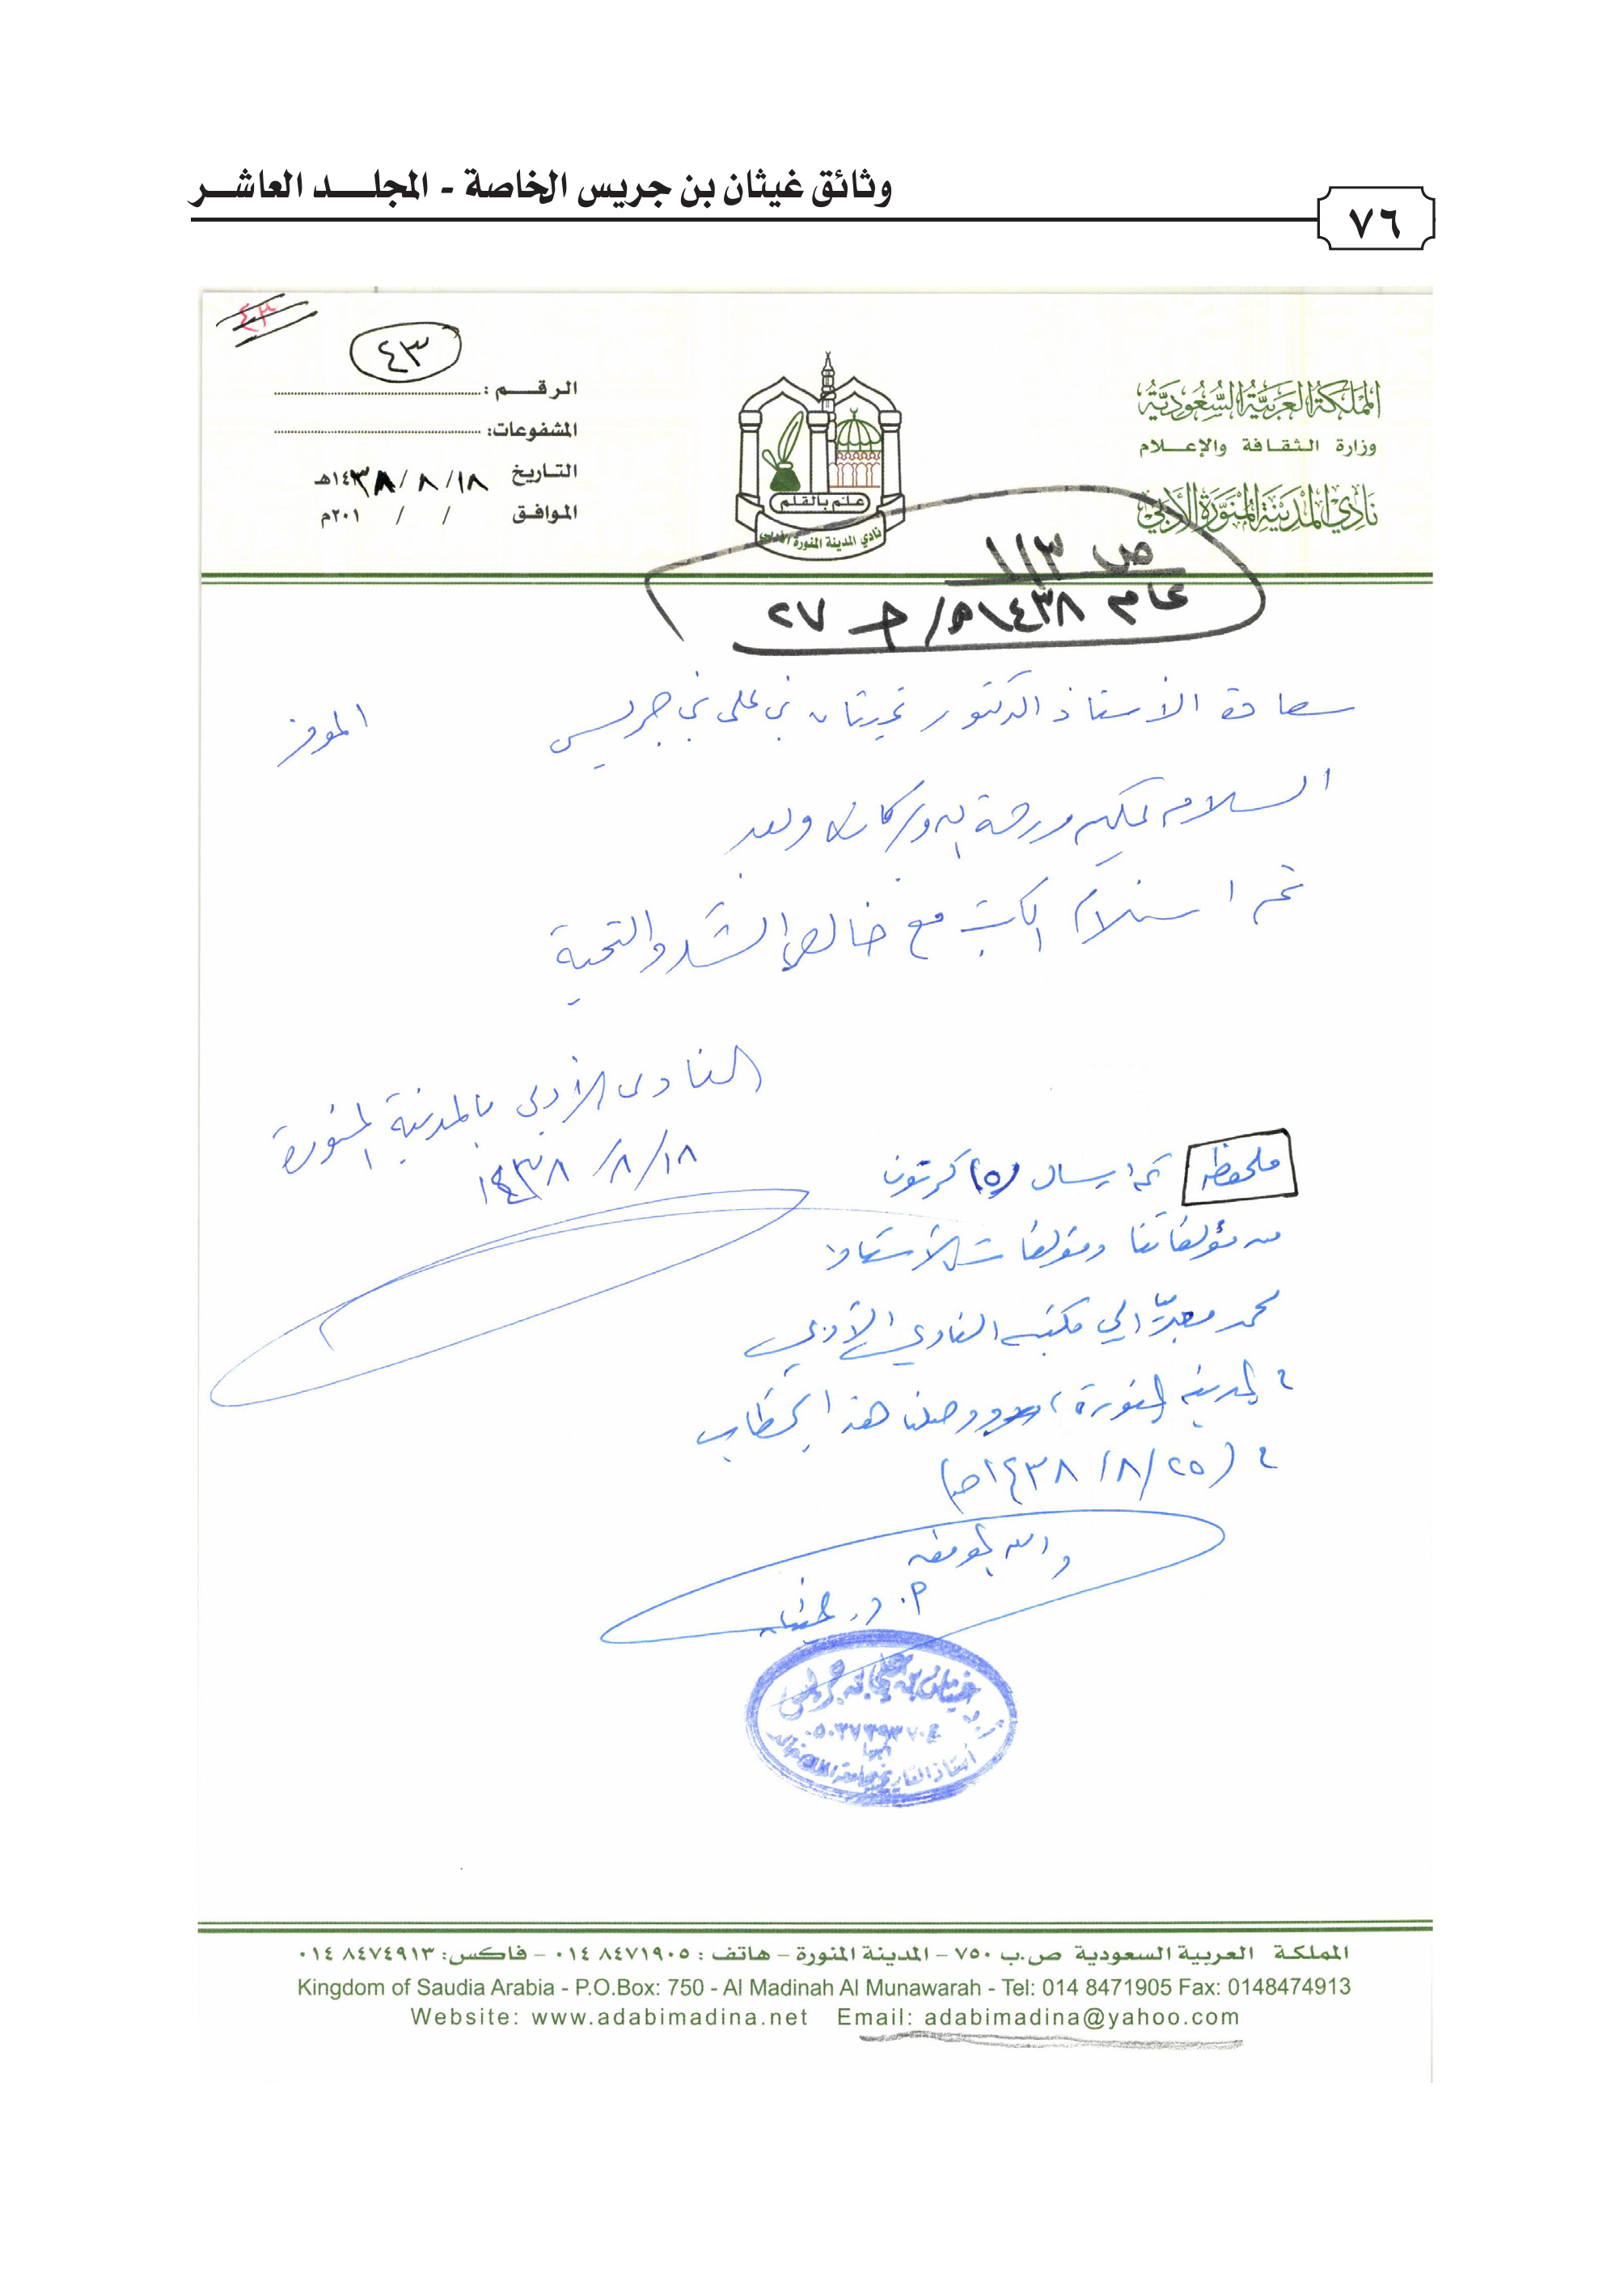 وثائق غيثان بن جريس الخاصة - المجلـــد العاشـــر
٧٦
المملكة العربية السعودية
وزارة الثقافة والإعلام
نادي المدينة المنورة الأدبي
علم بالقلم
نادي المدينة المنورة الأدبي
٤٣
٤٣
الرقم :
المشفوعات:
التاريخ ١٨/ ٨ /١٤٣٨هـ
الموافق / / ٢٠١م
ص ١/٣
عام ١٤٣٨هـ/ ج ٢٧
سعادة الأستاذ الدكتور غيثان بن علي بن جريس الموقر
السلام عليكم ورحمة الله وبركاته وبعد
تم استلام الكتب مع خالص الشكر والتحية
النادي الأدبي بالمدينة المنورة
١٨/ ٨/ ١٤٣٨
ملحوظة تم ارسال (٥) كرتون
من مؤلفاتنا ومؤلفات الأستاذ
محمد معبر إلى مكتبة النادي الأدبي
بالمدينة المنورة، ووصلنا هذا الخطاب
في (٢٥/ ٨/ ١٤٣٨هـ)
والله الموفق
أ. د. غيثان
غيثان بن علي بن جريس
أبها
أستاذ التاريخ بجامعة الملك خالد
المملكة العربية السعودية ص.ب ٧٥٠ – المدينة المنورة – هاتف : ٨٤٧١٩٠٥ ٠١٤ – فاكس: ٨٤٧٤٩١٣ ٠١٤
Kingdom of Saudia Arabia - P.O.Box: 750 - Al Madinah Al Munawarah - Tel: 014 8471905 Fax: 0148474913
Website: www.adabimadina.net Email: adabimadina@yahoo.com